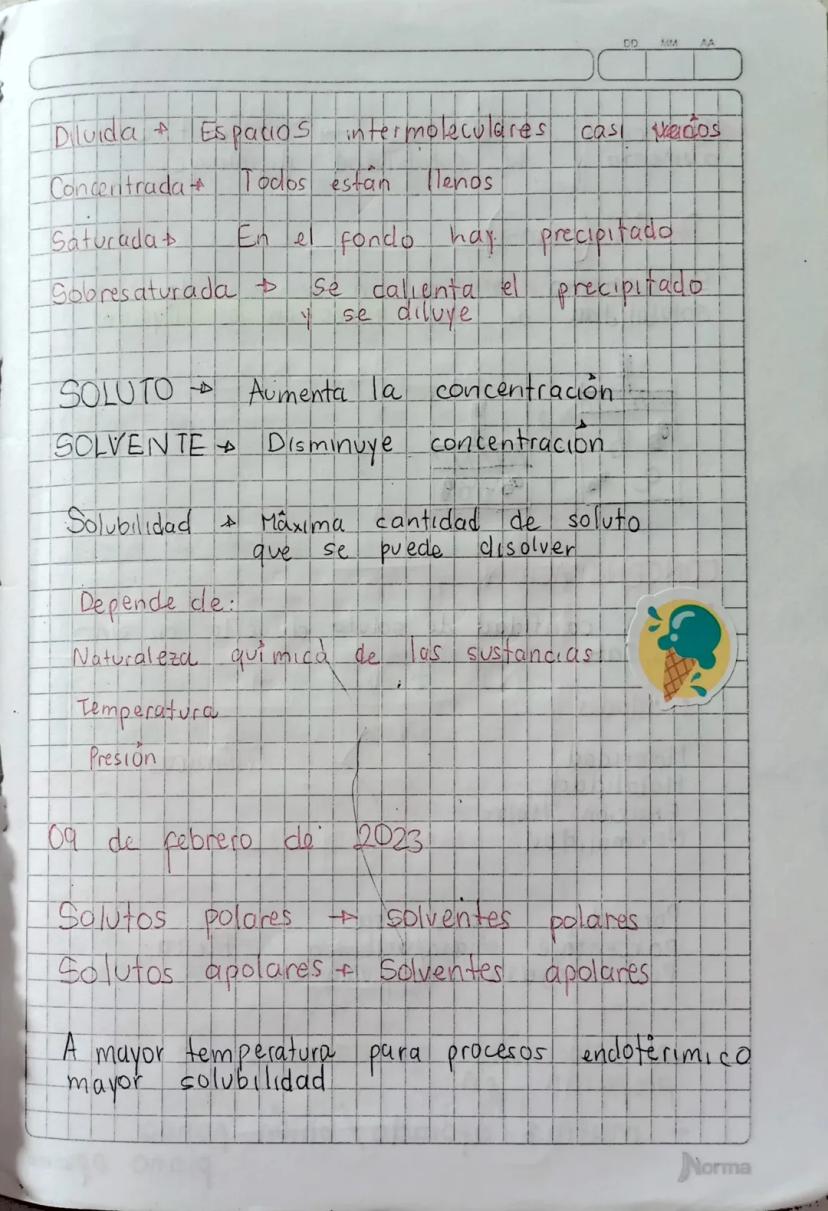 DD MM AA
Diluida → Espacios intermoleculares casi vacíos
Concentrada → Todos están llenos
Saturada → En el fondo hay precipitado
Sobresaturada → Se calienta el precipitado
y se diluye
SOLUTO → Aumenta la concentración
SOLVENTE → Disminuye concentración
Solubilidad → Máxima cantidad de soluto
que se puede disolver
Depende de:
Naturaleza química de las sustancias
Temperatura
Presión
09 de febrero de 2023
Solutos polares → solventes polares
Solutos apolares → Solventes apolares
A mayor temperatura para procesos endotérimico
mayor solubilidad
Norma